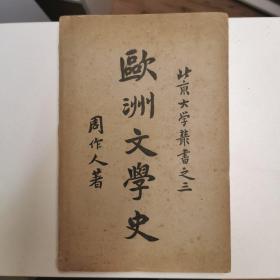 北京大学叢書之三
歐洲文學史
周作人著